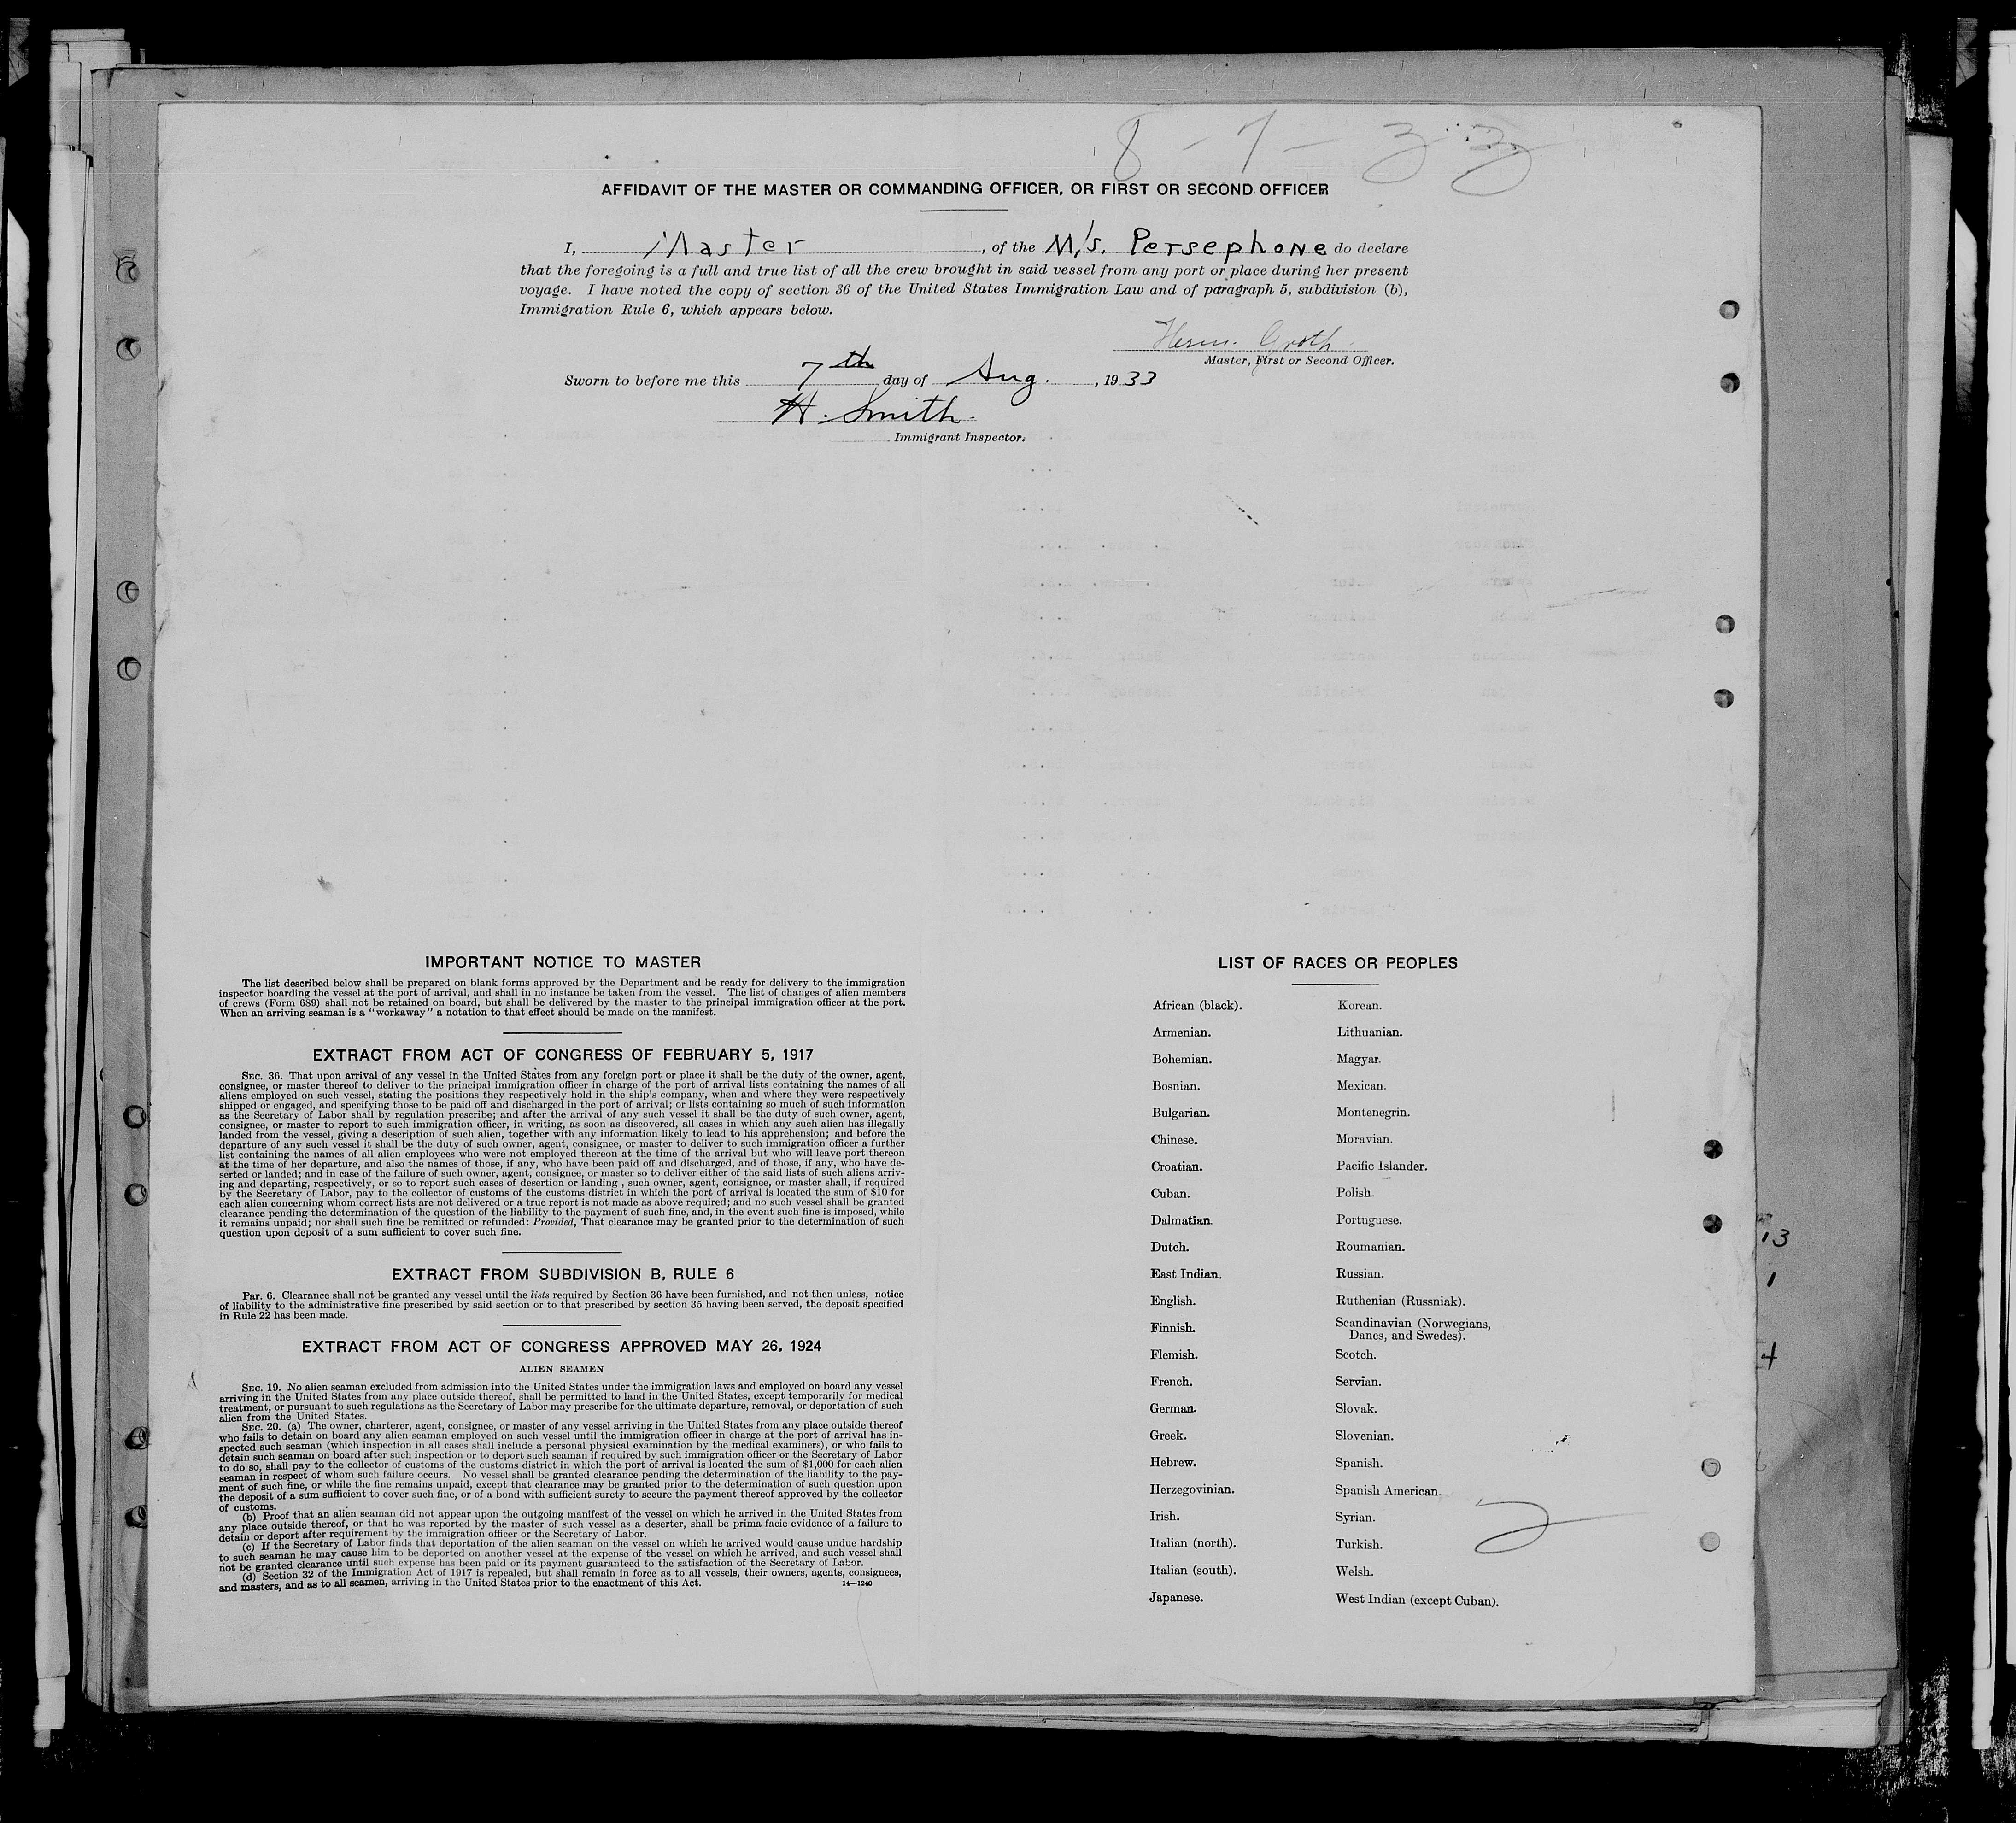 8-7-33
AFFIDAVIT OF THE MASTER OR COMMANDING OFFICER, OR FIRST OR SECOND OFFICER
I, Master, of the M/s. Persephone do declare
that the foregoing is a full and true list of all the crew brought in said vessel from any port or place during her present
voyage. I have noted the copy of section 36 of the United States Immigration Law and of paragraph 5, subdivision (b),
Immigration Rule 6, which appears below.
Herm. Groth
Master, First or Second Officer.
Sworn to before me this 7th day of Aug., 1933
H. Smith
Immigrant Inspector.
IMPORTANT NOTICE TO MASTER
The list described below shall be prepared on blank forms approved by the Department and be ready for delivery to the immigration
inspector boarding the vessel at the port of arrival, and shall in no instance be taken from the vessel. The list of changes of alien members
of crews (Form 689) shall not be retained on board, but shall be delivered by the master to the principal immigration officer at the port.
When an arriving seaman is a "workaway" a notation to that effect should be made on the manifest.
EXTRACT FROM ACT OF CONGRESS OF FEBRUARY 5, 1917
SEC. 36. That upon arrival of any vessel in the United States from any foreign port or place it shall be the duty of the owner, agent,
consignee, or master thereof to deliver to the principal immigration officer in charge of the port of arrival lists containing the names of all
aliens employed on such vessel, stating the positions they respectively hold in the ship's company, when and where they were respectively
shipped or engaged, and specifying those to be paid off and discharged in the port of arrival; or lists containing so much of such information
as the Secretary of Labor shall by regulation prescribe; and after the arrival of any such vessel it shall be the duty of such owner, agent,
consignee, or master to report to such immigration officer, in writing, as soon as discovered, all cases in which any such alien has illegally
landed from the vessel, giving a description of such alien, together with any information likely to lead to his apprehension; and before the
departure of any such vessel it shall be the duty of such owner, agent, consignee, or master to deliver to such immigration officer a further
list containing the names of all alien employees who were not employed thereon at the time of the arrival but who will leave port thereon
at the time of her departure, and also the names of those, if any, who have been paid off and discharged, and of those, if any, who have de-
serted or landed; and in case of the failure of such owner, agent, consignee, or master so to deliver either of the said lists of such aliens arriv-
ing and departing, respectively, or so to report such cases of desertion or landing , such owner, agent, consignee, or master shall, if required
by the Secretary of Labor, pay to the collector of customs of the customs district in which the port of arrival is located the sum of $10 for
each alien concerning whom correct lists are not delivered or a true report is not made as above required; and no such vessel shall be granted
clearance pending the determination of the question of the liability to the payment of such fine, and, in the event such fine is imposed, while
it remains unpaid; nor shall such fine be remitted or refunded: Provided, That clearance may be granted prior to the determination of such
question upon deposit of a sum sufficient to cover such fine.
EXTRACT FROM SUBDIVISION B, RULE 6
Par. 6. Clearance shall not be granted any vessel until the lists required by Section 36 have been furnished, and not then unless, notice
of liability to the administrative fine prescribed by said section or to that prescribed by section 35 having been served, the deposit specified
in Rule 22 has been made.
EXTRACT FROM ACT OF CONGRESS APPROVED MAY 26, 1924
ALIEN SEAMEN
SEC. 19. No alien seaman excluded from admission into the United States under the immigration laws and employed on board any vessel
arriving in the United States from any place outside thereof, shall be permitted to land in the United States, except temporarily for medical
treatment, or pursuant to such regulations as the Secretary of Labor may prescribe for the ultimate departure, removal, or deportation of such
alien from the United States.
SEC. 20. (a) The owner, charterer, agent, consignee, or master of any vessel arriving in the United States from any place outside thereof
who fails to detain on board any alien seaman employed on such vessel until the immigration officer in charge at the port of arrival has in-
spected such seaman (which inspection in all cases shall include a personal physical examination by the medical examiners), or who fails to
detain such seaman on board after such inspection or to deport such seaman if required by such immigration officer or the Secretary of Labor
to do so, shall pay to the collector of customs of the customs district in which the port of arrival is located the sum of $1,000 for each alien
seaman in respect of whom such failure occurs. No vessel shall be granted clearance pending the determination of the liability to the pay-
ment of such fine, or while the fine remains unpaid, except that clearance may be granted prior to the determination of such question upon
the deposit of a sum sufficient to cover such fine, or of a bond with sufficient surety to secure the payment thereof approved by the collector
of customs.
(b) Proof that an alien seaman did not appear upon the outgoing manifest of the vessel on which he arrived in the United States from
any place outside thereof, or that he was reported by the master of such vessel as a deserter, shall be prima facie evidence of a failure to
detain or deport after requirement by the immigration officer or the Secretary of Labor.
(c) If the Secretary of Labor finds that deportation of the alien seaman on the vessel on which he arrived would cause undue hardship
to such seaman he may cause him to be deported on another vessel at the expense of the vessel on which he arrived, and such vessel shall
not be granted clearance until such expense has been paid or its payment guaranteed to the satisfaction of the Secretary of Labor.
(d) Section 32 of the Immigration Act of 1917 is repealed, but shall remain in force as to all vessels, their owners, agents, consignees,
and masters, and as to all seamen, arriving in the United States prior to the enactment of this Act.
14—1240
LIST OF RACES OR PEOPLES
African (black).
Armenian.
Bohemian.
Bosnian.
Bulgarian.
Chinese.
Croatian.
Cuban.
Dalmatian.
Dutch.
East Indian.
English.
Finnish.
Flemish.
French.
German.
Greek.
Hebrew.
Herzegovinian.
Irish.
Italian (north).
Italian (south).
Japanese.
Korean.
Lithuanian.
Magyar.
Mexican.
Montenegrin.
Moravian.
Pacific Islander.
Polish.
Portuguese.
Roumanian.
Russian.
Ruthenian (Russniak).
Scandinavian (Norwegians,
Danes, and Swedes).
Scotch.
Servian.
Slovak.
Slovenian.
Spanish.
Spanish American.
Syrian.
Turkish.
Welsh.
West Indian (except Cuban).
13
1
4